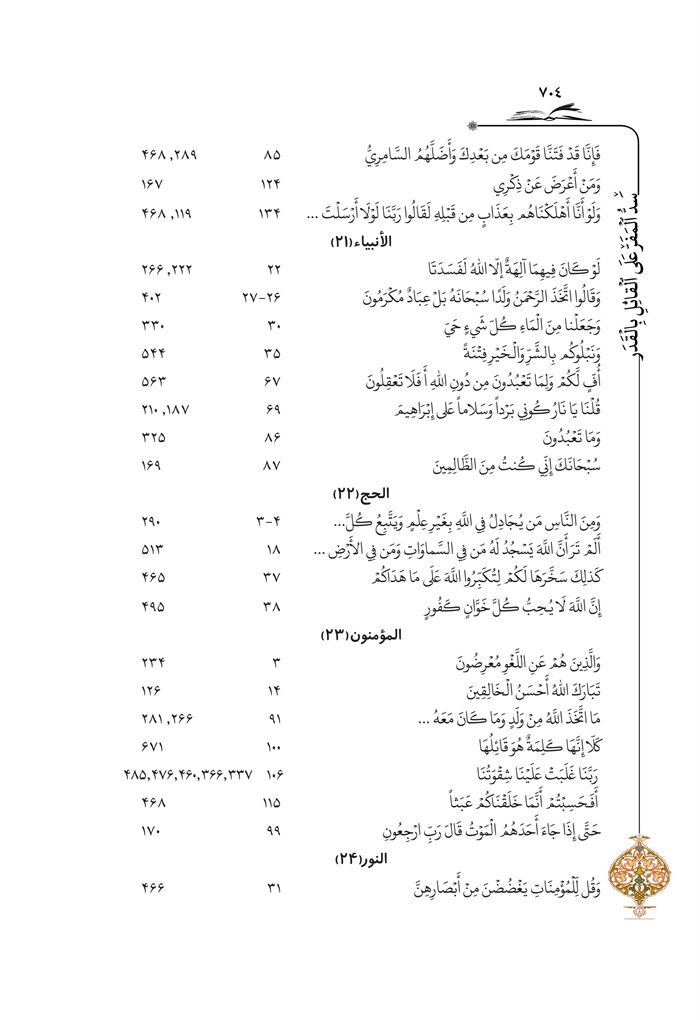 ٧٠٤
سِدُّ الْمَفَرِّ عَلَى الْقَائِلِ بِالْقَدَر
فَإِنَّا قَدْ فَتَنَّا قَوْمَكَ مِن بَعْدِكَ وَأَضَلَّهُمُ السَّامِرِيُّ ۸۵ ۴۶۸,۲۸۹
وَمَنْ أَعْرَضَ عَنْ ذِكْرِي ۱۲۴ ۱۶۷
وَلَوْ أَنَّا أَهْلَكْنَاهُم بِعَذَابٍ مِن قَبْلِهِ لَقَالُوا رَبَّنَا لَوْلَا أَرْسَلْتَ ... ۱۳۴ ۴۶۸,۱۱۹
الأنبياء(۲۱)
لَوْ كَانَ فِيهِمَا آلِهَةٌ إِلّا اللهُ لَفَسَدَتَا ۲۲ ۲۶۶,۲۲۲
وَقَالُوا اتَّخَذَ الرَّحْمَنُ وَلَدًا سُبْحَانَهُ بَلْ عِبَادٌ مُكْرَمُونَ ۲۶-۲۷ ۴۰۲
وَجَعَلْنا مِنَ الْمَاءِ كُلَّ شَيءٍ حَيّ ۳۰ ۳۳۰
وَنَبْلُوكُم بِالشَّرِّ وَالْخَيْرِ فِتْنَةً ۳۵ ۵۴۴
أُفٍ لَكُمْ وَلِمَا تَعْبُدُونَ مِن دُونِ اللهِ أَ فَلَا تَعْقِلُونَ ۶۷ ۵۶۳
قُلْنَا يَا نَارُ كُوني بَرْداً وَسَلاماً عَلى إِبْرَاهِيمَ ۶۹ ۲۱۰,۱۸۷
وَمَا تَعْبُدُونَ ۸۶ ۳۲۵
سُبْحَانَكَ إِنِّي كُنتُ مِنَ الظَّالِمِينَ ۸۷ ۱۶۹
الحج(۲۲)
وَمِنَ النَّاسِ مَن يُجَادِلُ فِي اللَّهِ بِغَيْرِ عِلْمٍ وَيَتَّبِعُ كُلَّ... ۳-۴ ۲۹۰
أَلَمْ تَرَ أَنَّ اللَّهَ يَسْجُدُ لَهُ مَن فِي السَّماوَاتِ وَمَن فِي الْأَرْضِ ... ۱۸ ۵۱۳
كَذلِكَ سَخَّرَهَا لَكُمْ لِتُكَبِّرُوا اللَّهَ عَلَى مَا هَدَاكُمْ ۳۷ ۴۶۵
إِنَّ اللَّهَ لَا يُحِبُّ كُلَّ خَوَّانٍ كَفُورٍ ۳۸ ۴۹۵
المؤمنون(۲۳)
وَالَّذِينَ هُمْ عَنِ اللَّغْوِ مُعْرِضُونَ ۳ ۲۳۴
تَبَارَكَ اللهُ أَحْسَنُ الْخَالِقِينَ ۱۴ ۱۲۶
مَا اتَّخَذَ اللَّهُ مِنْ وَلَدٍ وَمَا كَانَ مَعَهُ ... ۹۱ ۲۸۱,۲۶۶
كَلّا إِنَّهَا كَلِمَةٌ هُوَ قَائِلُهَا ۱۰۰ ۶۷۱
رَبَّنَا غَلَبَتْ عَلَيْنَا شِقْوَتُنَا ۱۰۶ ۴۸۵,۴۷۶,۴۶۰,۳۶۶,۳۳۷
أَفَحَسِبْتُمْ أَنَّمَا خَلَقْنَاكُمْ عَبَثاً ۱۱۵ ۴۶۸
حَتَّى إِذَا جَاءَ أَحَدَهُمُ الْمَوْتُ قَالَ رَبِّ ارْجِعُونِ ۹۹ ۱۷۰
النور(۲۴)
وَقُل لِّلْمُؤْمِنَاتِ يَغْضُضْنَ مِنْ أَبْصَارِهِنَّ ۳۱ ۴۶۶